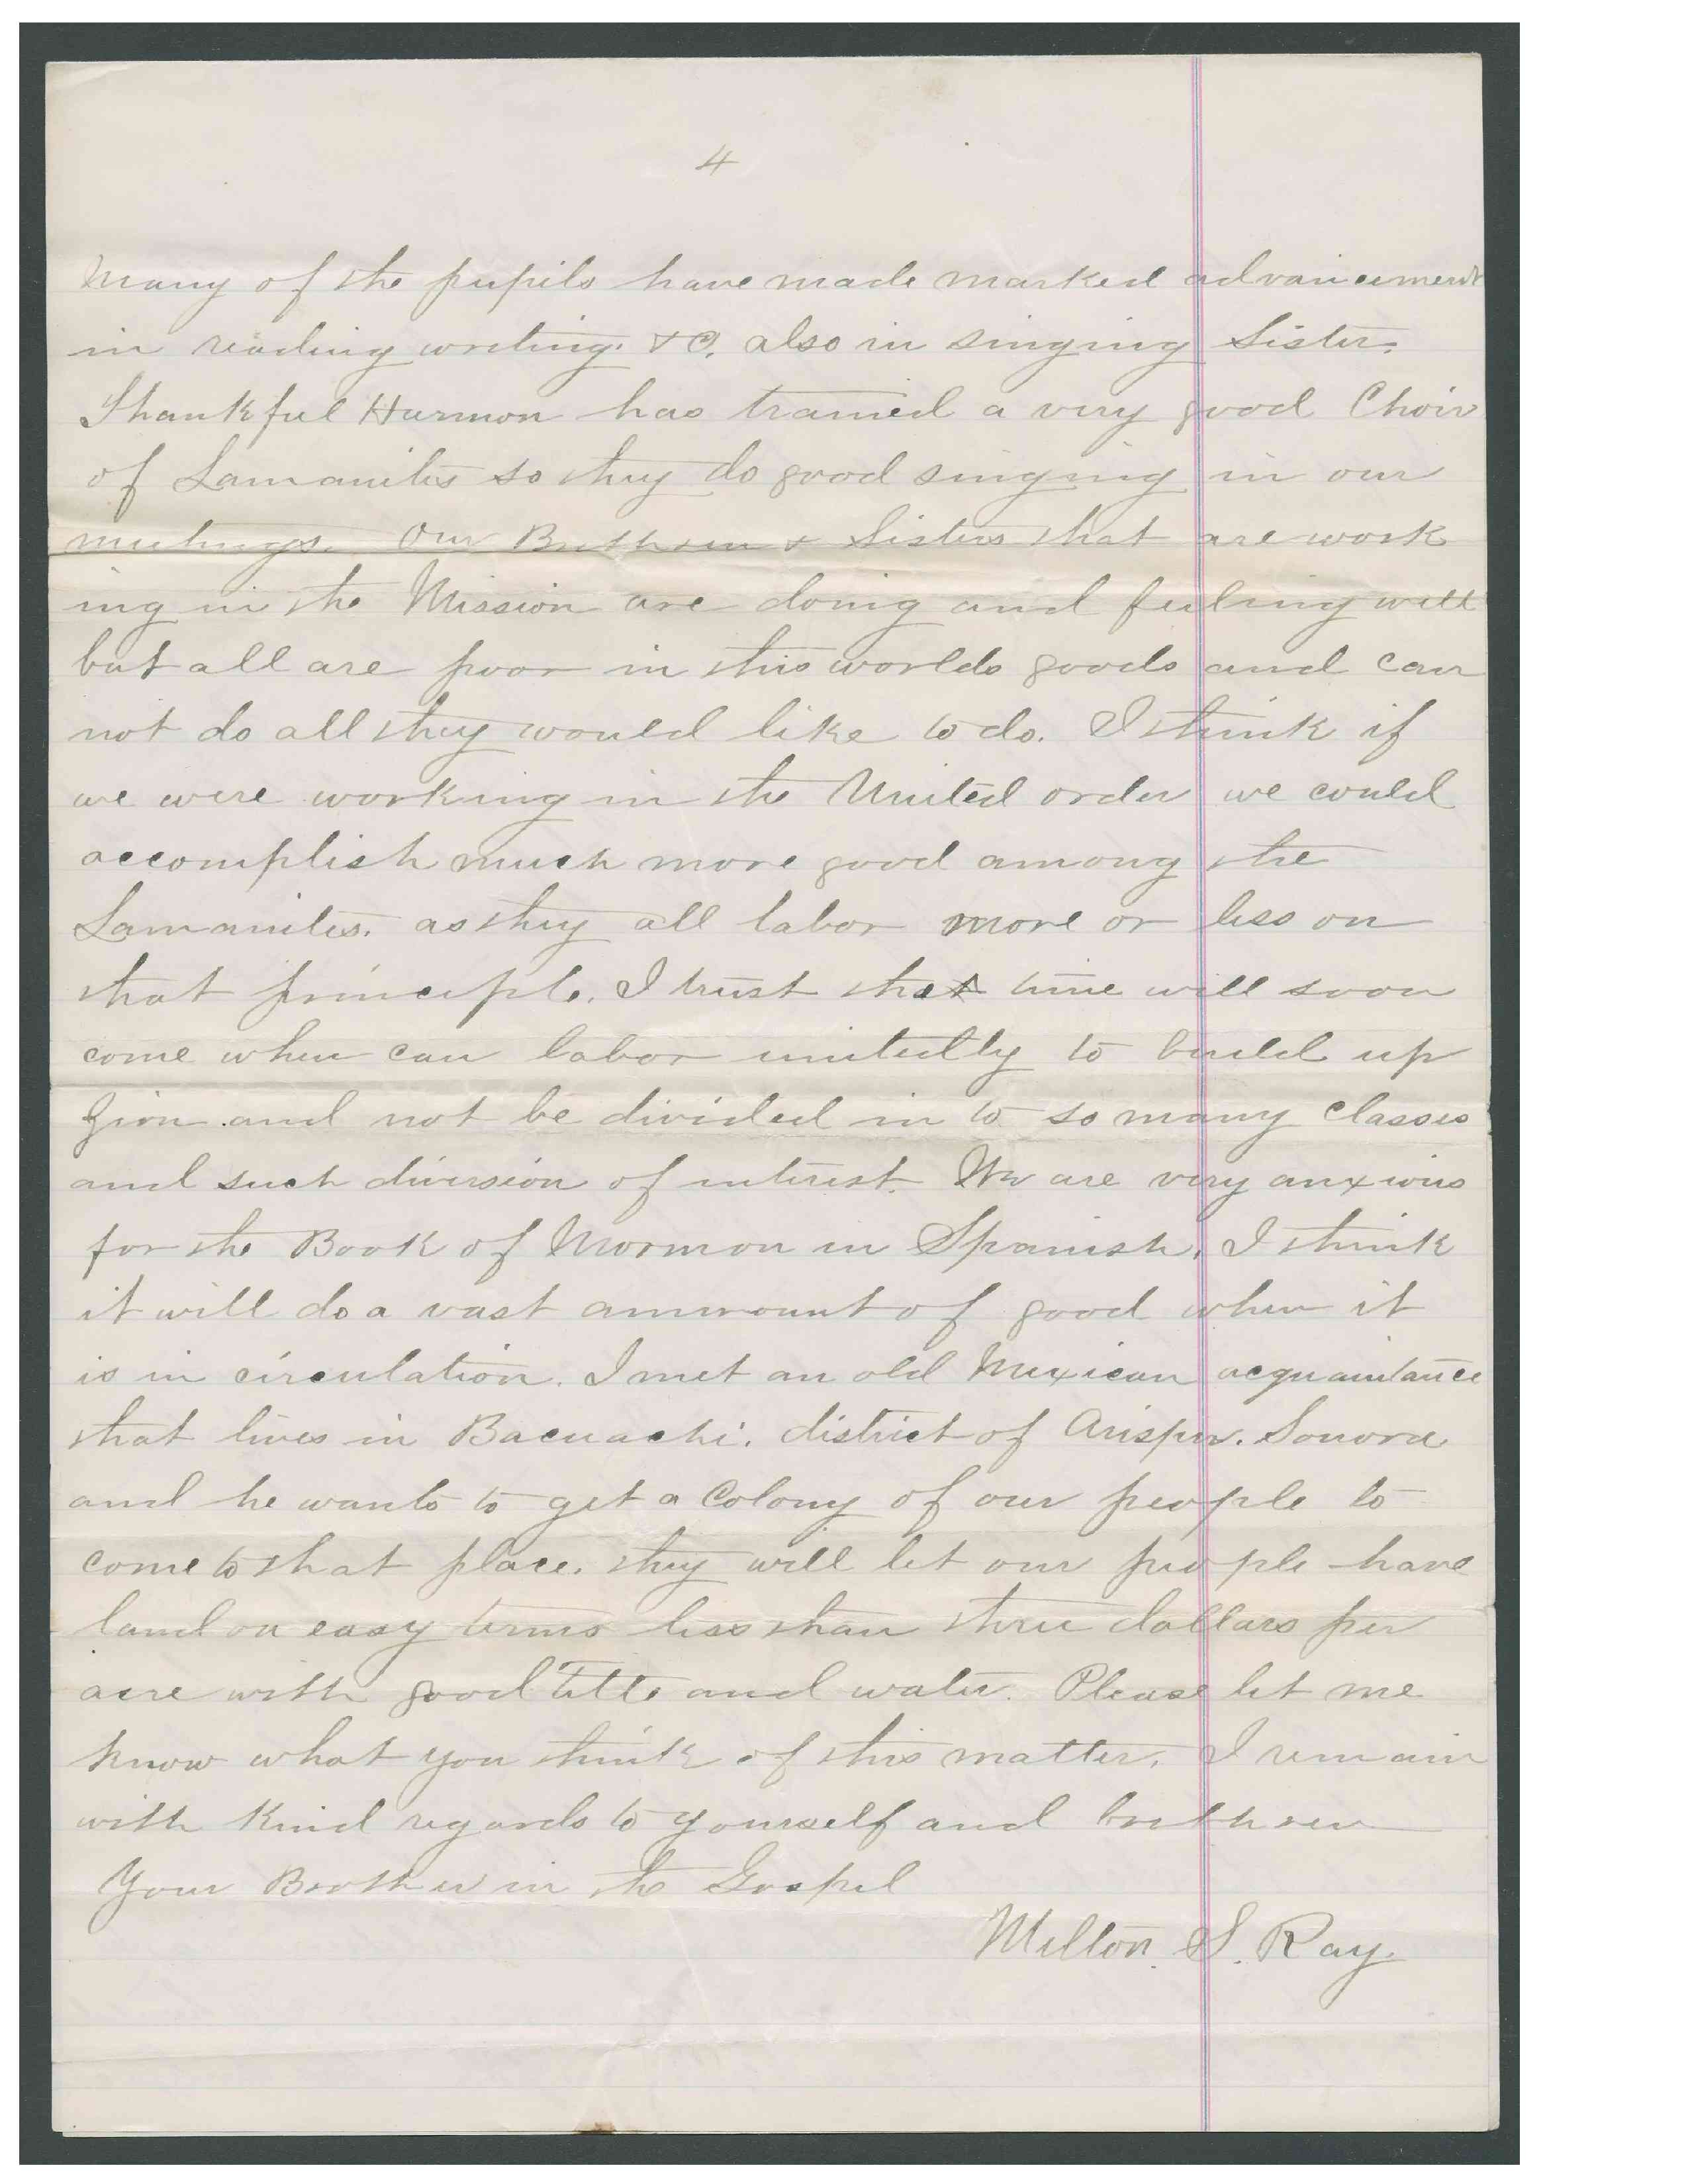 4
Many of the pupils have made marked advancement
in reading writing. &C. also in singing Sister.
Thankful Harmon has trained a very good Choir
of Lamanites so they do good singing in our
meetings. Our Brethren & Sisters that are work
ing in the Mission are doing and feeling well
but all are poor in this worlds goods and can
not do all they would like to do. I think if
we were working in the United order we could
accomplish much more good among the
Lamanites. as they all labor more or less on
that principle. I trust that time will soon
come when can labor unitedly to build up
Zion and not be divided in to so many classes
and such diversion of interest. We are very anxious
for the Book of Mormon in Spanish. I think
it will do a vast ammount of good when it
is in circulation. I met an old Mexican acquaintance
that lives in Bacuachi. district of Arispe. Sonora
and he wants to get a Colony of our people to
come to that place. they will let our people have
land on easy terms less than three dollars per
acre with good Title and water. Please let me
know what you think of this matter. I remain
with Kind regards to yourself and brethren
Your Brother in the Gospel
Milton. S. Ray.